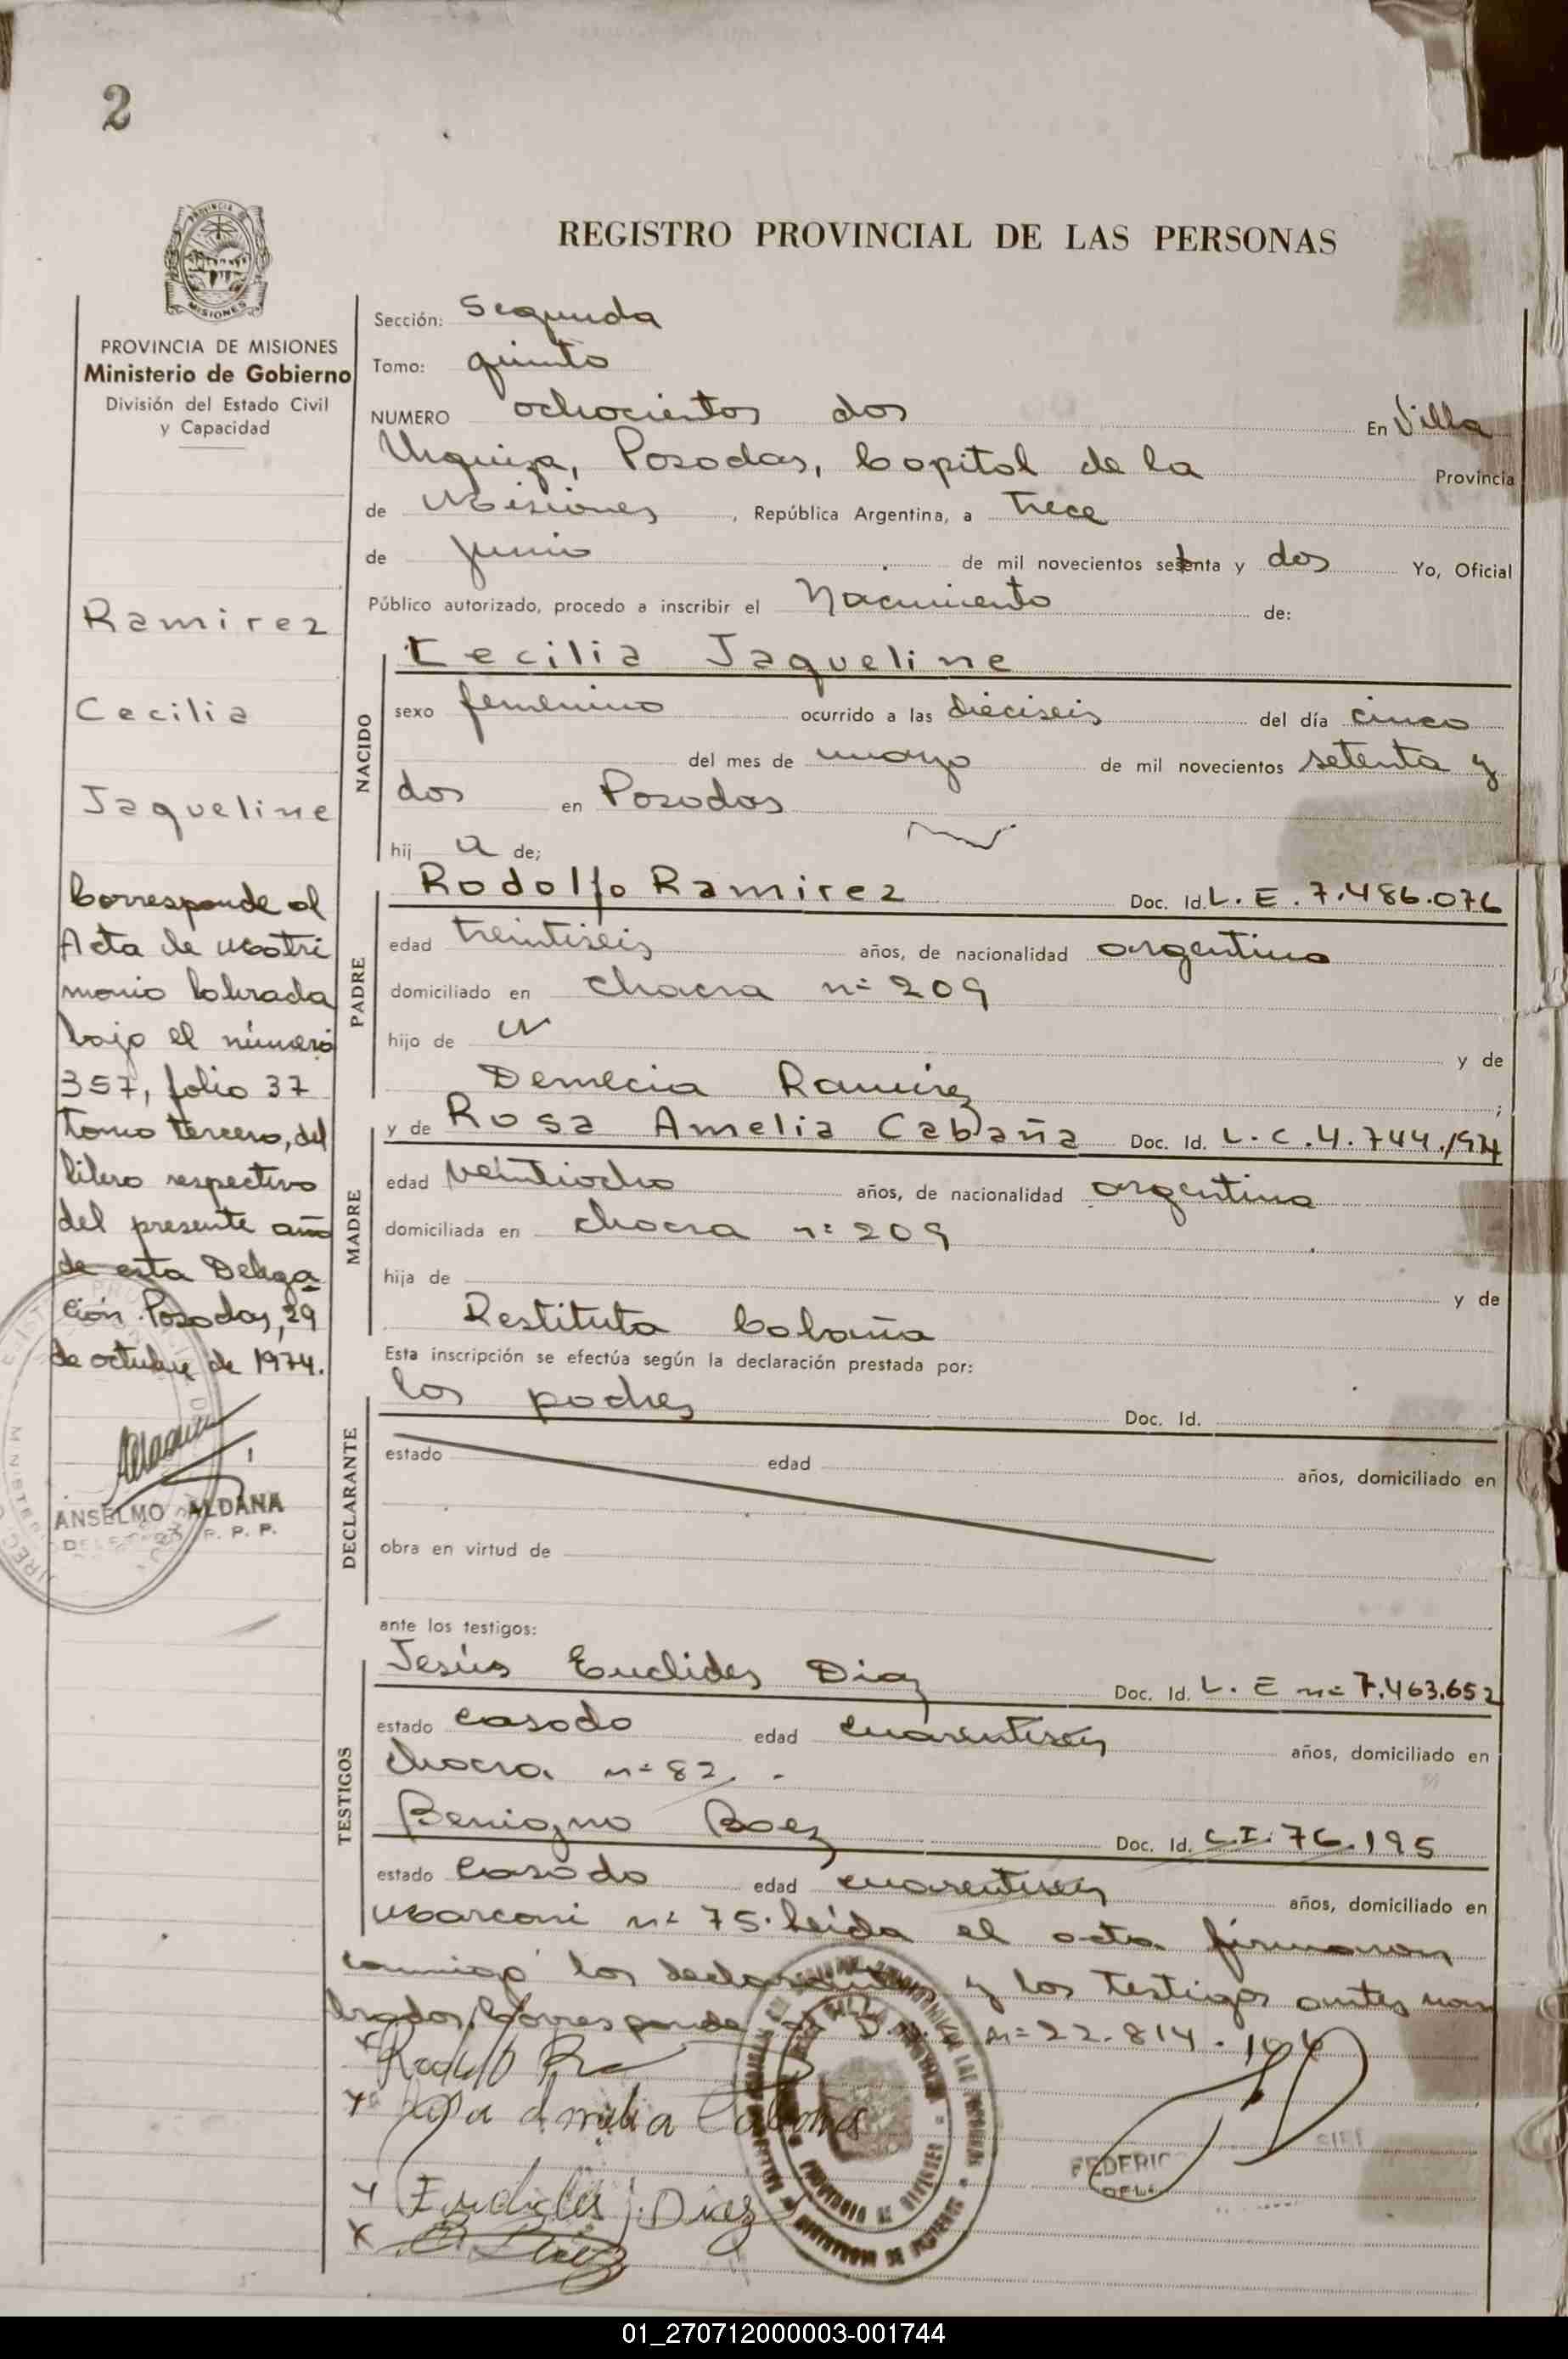 2
REGISTRO PROVINCIAL DE LAS PERSONAS
PROVINCIA DE MISIONES
Ministerio de Gobierno
División del Estado Civil
y Capacidad
Ramirez
Cecilia
Jaqueline
Corresponde al
Acta de Matri
monio labrada
bajo el número
357, folio 37
tomo tercero, del
libro respectivo
del presente año
de esta Delega
ción. Posadas, 29
de octubre de 1974.
ANSELMO ALDANA
Sección: Segunda
Tomo: quinto
NUMERO ochocientos dos En Villa
Urquiza, Posadas, Capital de la Provincia
de Misiones, República Argentina, a trece
de junio de mil novecientos setenta y dos Yo, Oficial
Público autorizado, procedo a inscribir el Nacimiento de:
NACIDO
Cecilia Jaqueline
sexo femenino ocurrido a las dieciseis del día cinco
del mes de marzo de mil novecientos setenta y
dos en Posadas
hij a de;
PADRE
Rodolfo Ramirez Doc. Id. L. E. 7.486.076
edad treintiseis años, de nacionalidad argentino
domiciliado en chacra nº 209
hijo de y de
Demecia Ramirez;
MADRE
y de Rosa Amelia Cabaña Doc. Id. L. C. 4.744.194
edad veintiocho años, de nacionalidad argentina
domiciliada en chacra nº 209
hija de y de
Restituta Cabaña
Esta inscripción se efectúa según la declaración prestada por:
DECLARANTE
los padres Doc. Id.
estado edad años, domiciliado en
obra en virtud de
ante los testigos:
TESTIGOS
Jesús Euclides Diaz Doc. Id. L. E nº 7.463.652
estado casado edad cuarentiseis años, domiciliado en
chacra nº 82. -
Benigno Baez Doc. Id. C.I. 76.195
estado casado edad cuarentiseis años, domiciliado en
Marconi nº 75. Leída el acta firmaron
conmigo los declarantes y los testigos antes nom
brados. Corresponde nº 22.814.
Rosa Amelia Cabaña
Euclides J. Diaz
FEDERIC
01_270712000003-001744